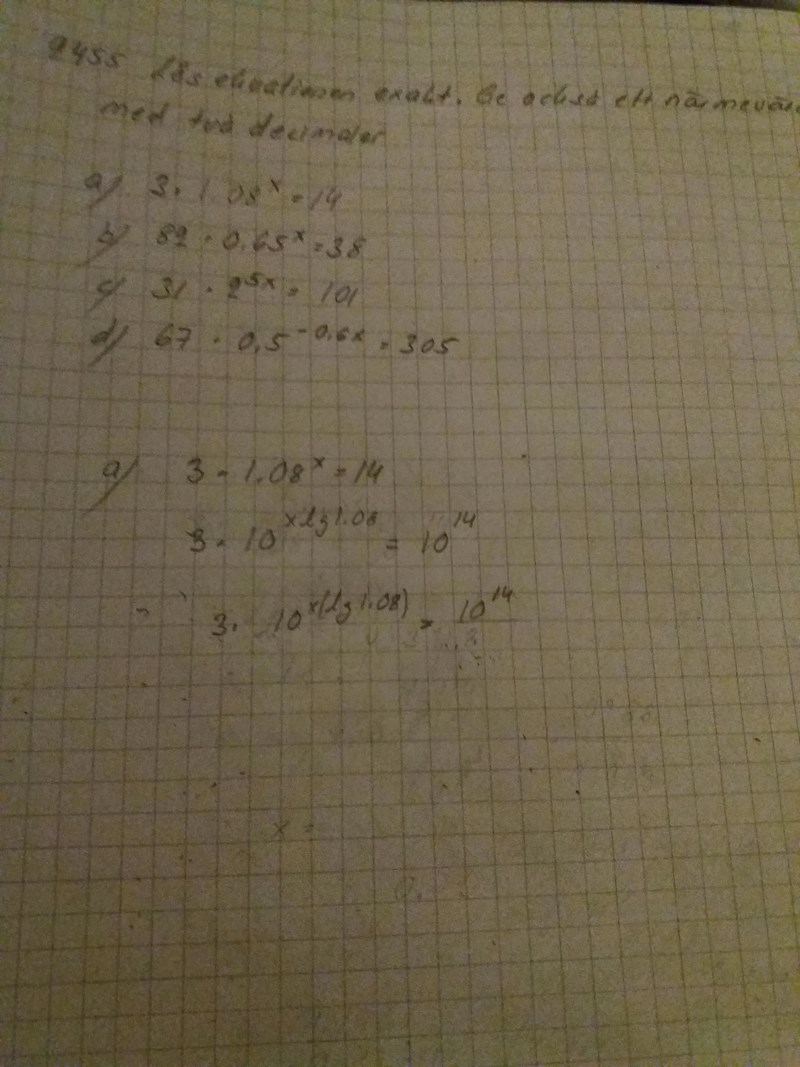 2455 Lös ekvationen exakt. Ge också ett närmevärd
med två decimaler
a) 3 · 1.08^x = 14
b) 82 · 0.65^x = 38
c) 31 · 2^5x = 101
d) 67 · 0,5^-0.6x = 305
a) 3 · 1.08^x = 14
3 · 10^x lg 1.08 = 10^14
3 · 10^x(lg 1.08) = 10^14
x =